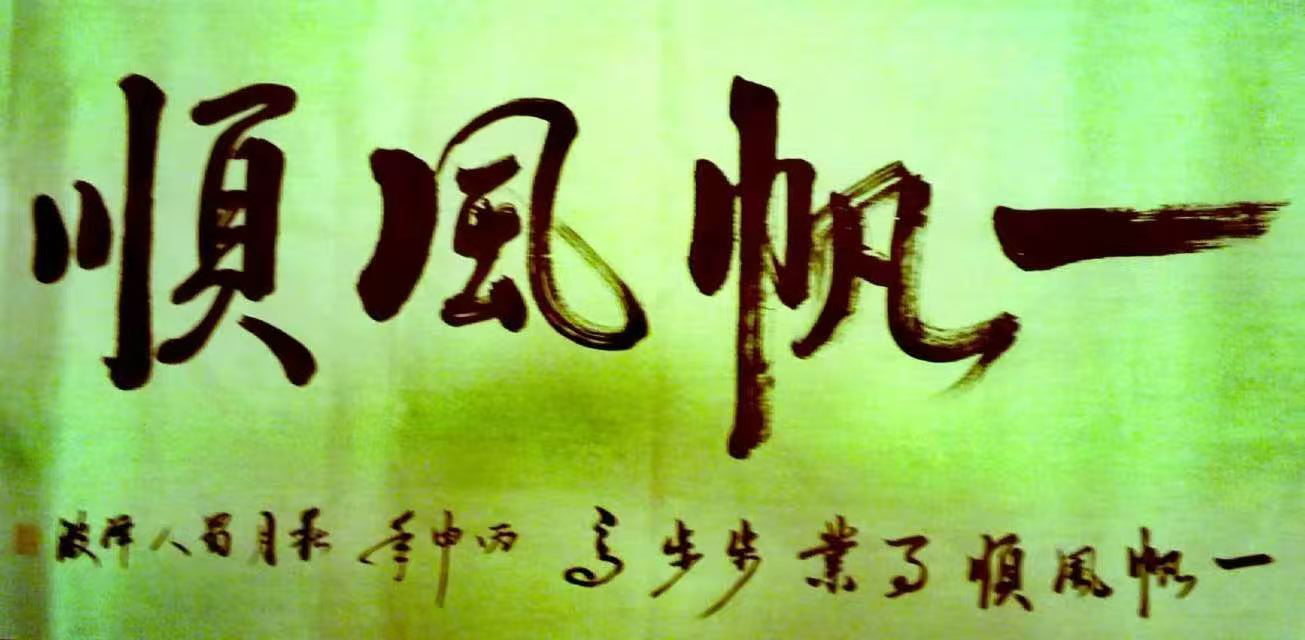 一帆風順
一帆風順事業步步高丙申年秋月蜀人澤波